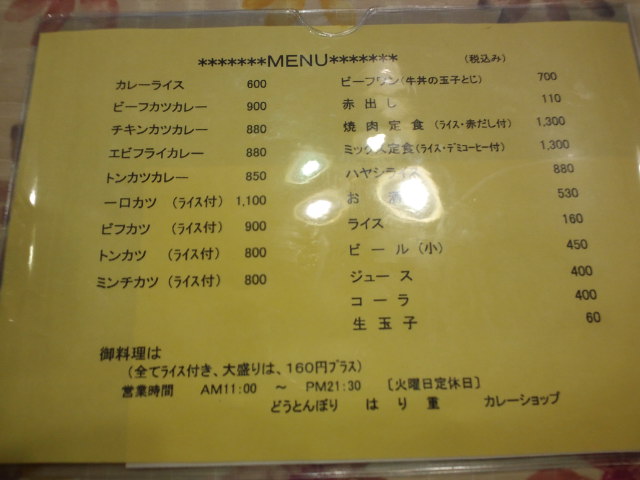 *******MENU******* (税込み)
カレーライス 600
ビーフカツカレー 900
チキンカツカレー 880
エビフライカレー 880
トンカツカレー 850
一口カツ (ライス付) 1,100
ビフカツ (ライス付) 900
トンカツ (ライス付) 800
ミンチカツ (ライス付) 800
ビーフワン(牛丼の玉子とじ) 700
赤出し 110
焼肉定食 (ライス・赤だし付) 1,300
ミックス定食(ライス・デミコーヒー付) 1,300
ハヤシライス 880
お酒 530
ライス 160
ビール(小) 450
ジュース 400
コーラ 400
生玉子 60
御料理は
(全てライス付き、大盛りは、160円プラス)
営業時間 AM11:00 ~ PM21:30 〔火曜日定休日〕
どうとんぼり はり重 カレーショップ